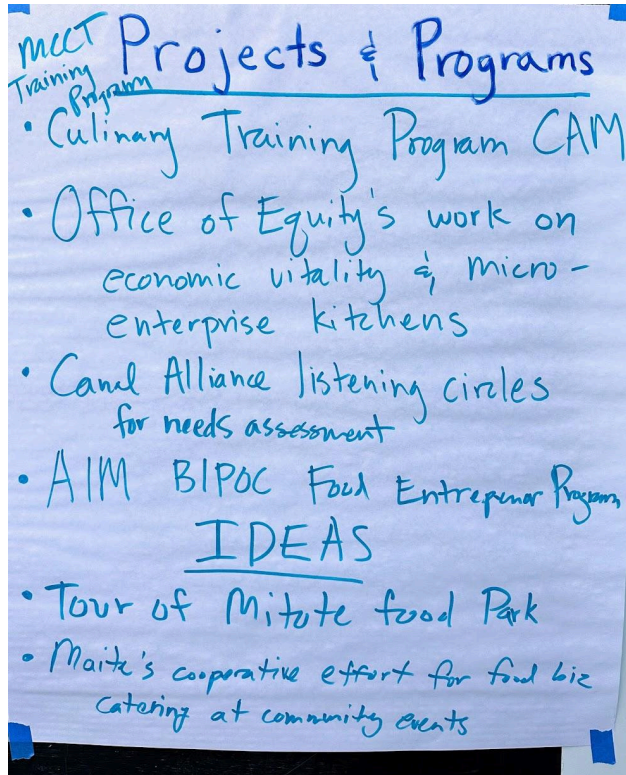 MCCT
Training
Program
Projects & Programs
• Culinary Training Program CAM
• Office of Equity's work on
economic vitality & micro-
enterprise kitchens
• Canal Alliance listening circles
for needs assessment
• AIM BIPOC Food Entrepenur Program
IDEAS
• Tour of Mitote food Park
• Maite's cooperative effort for food biz
catering at community events